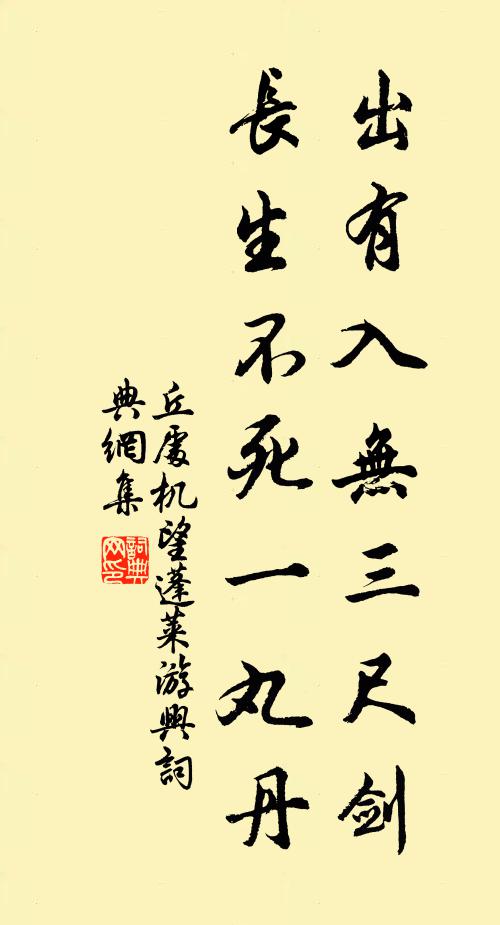 出有入無三尺劍
長生不死一丸丹
丘處机望蓬萊游興詞
典網集
詞典
网印